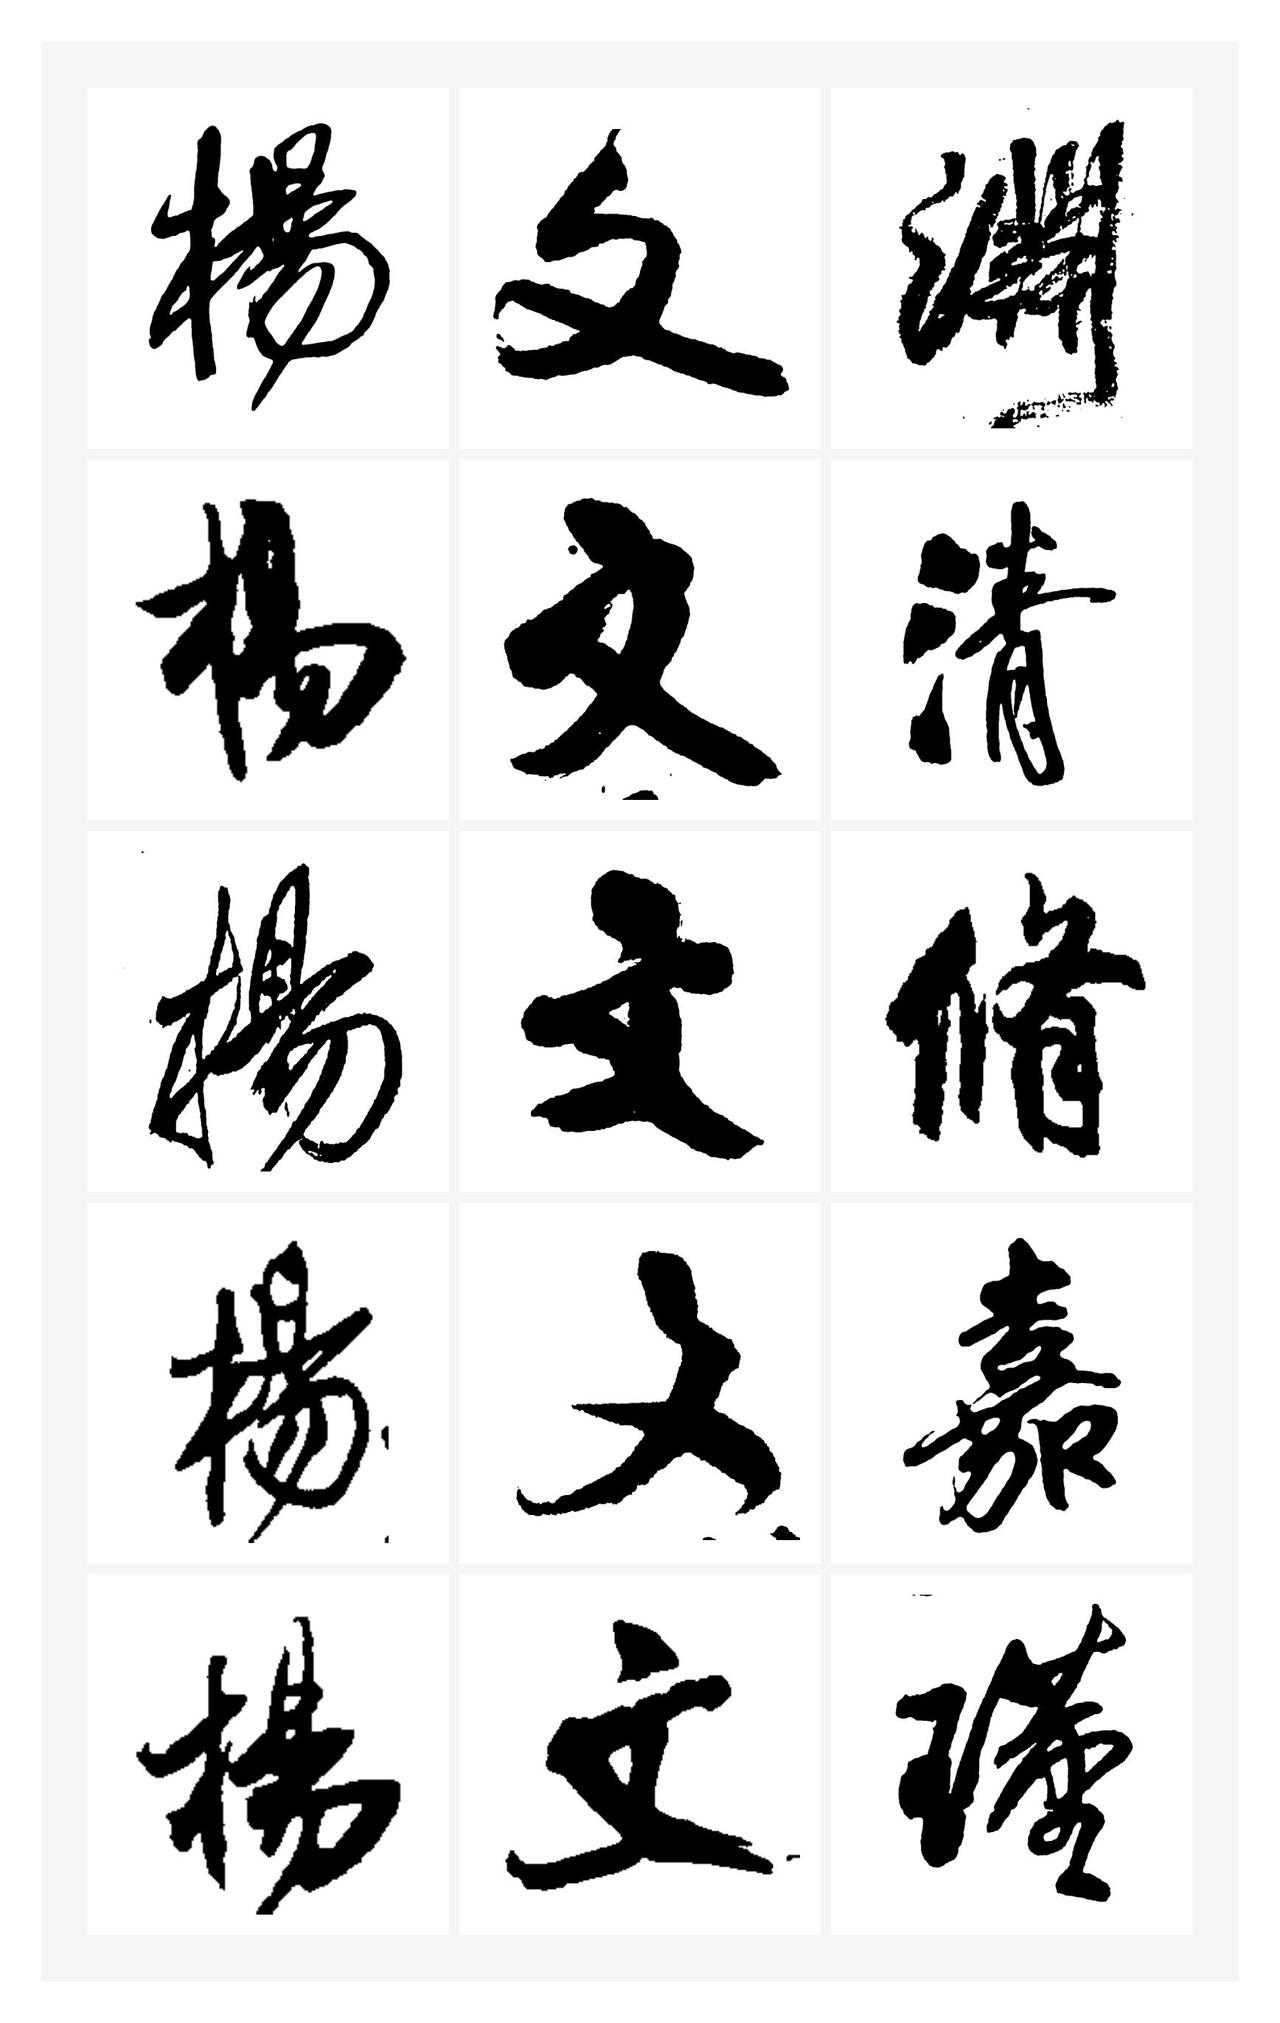 楊文淵
楊文清
楊文脩
楊文嘉
楊文瑾